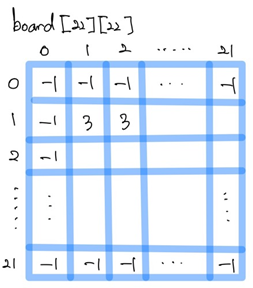 board[22][22]
0 1 2 ..... 21
0 -1 -1 -1 ... -1
1 -1 3 3
2 -1
⋮ ⋮ ⋮
21 -1 -1 -1 ... -1